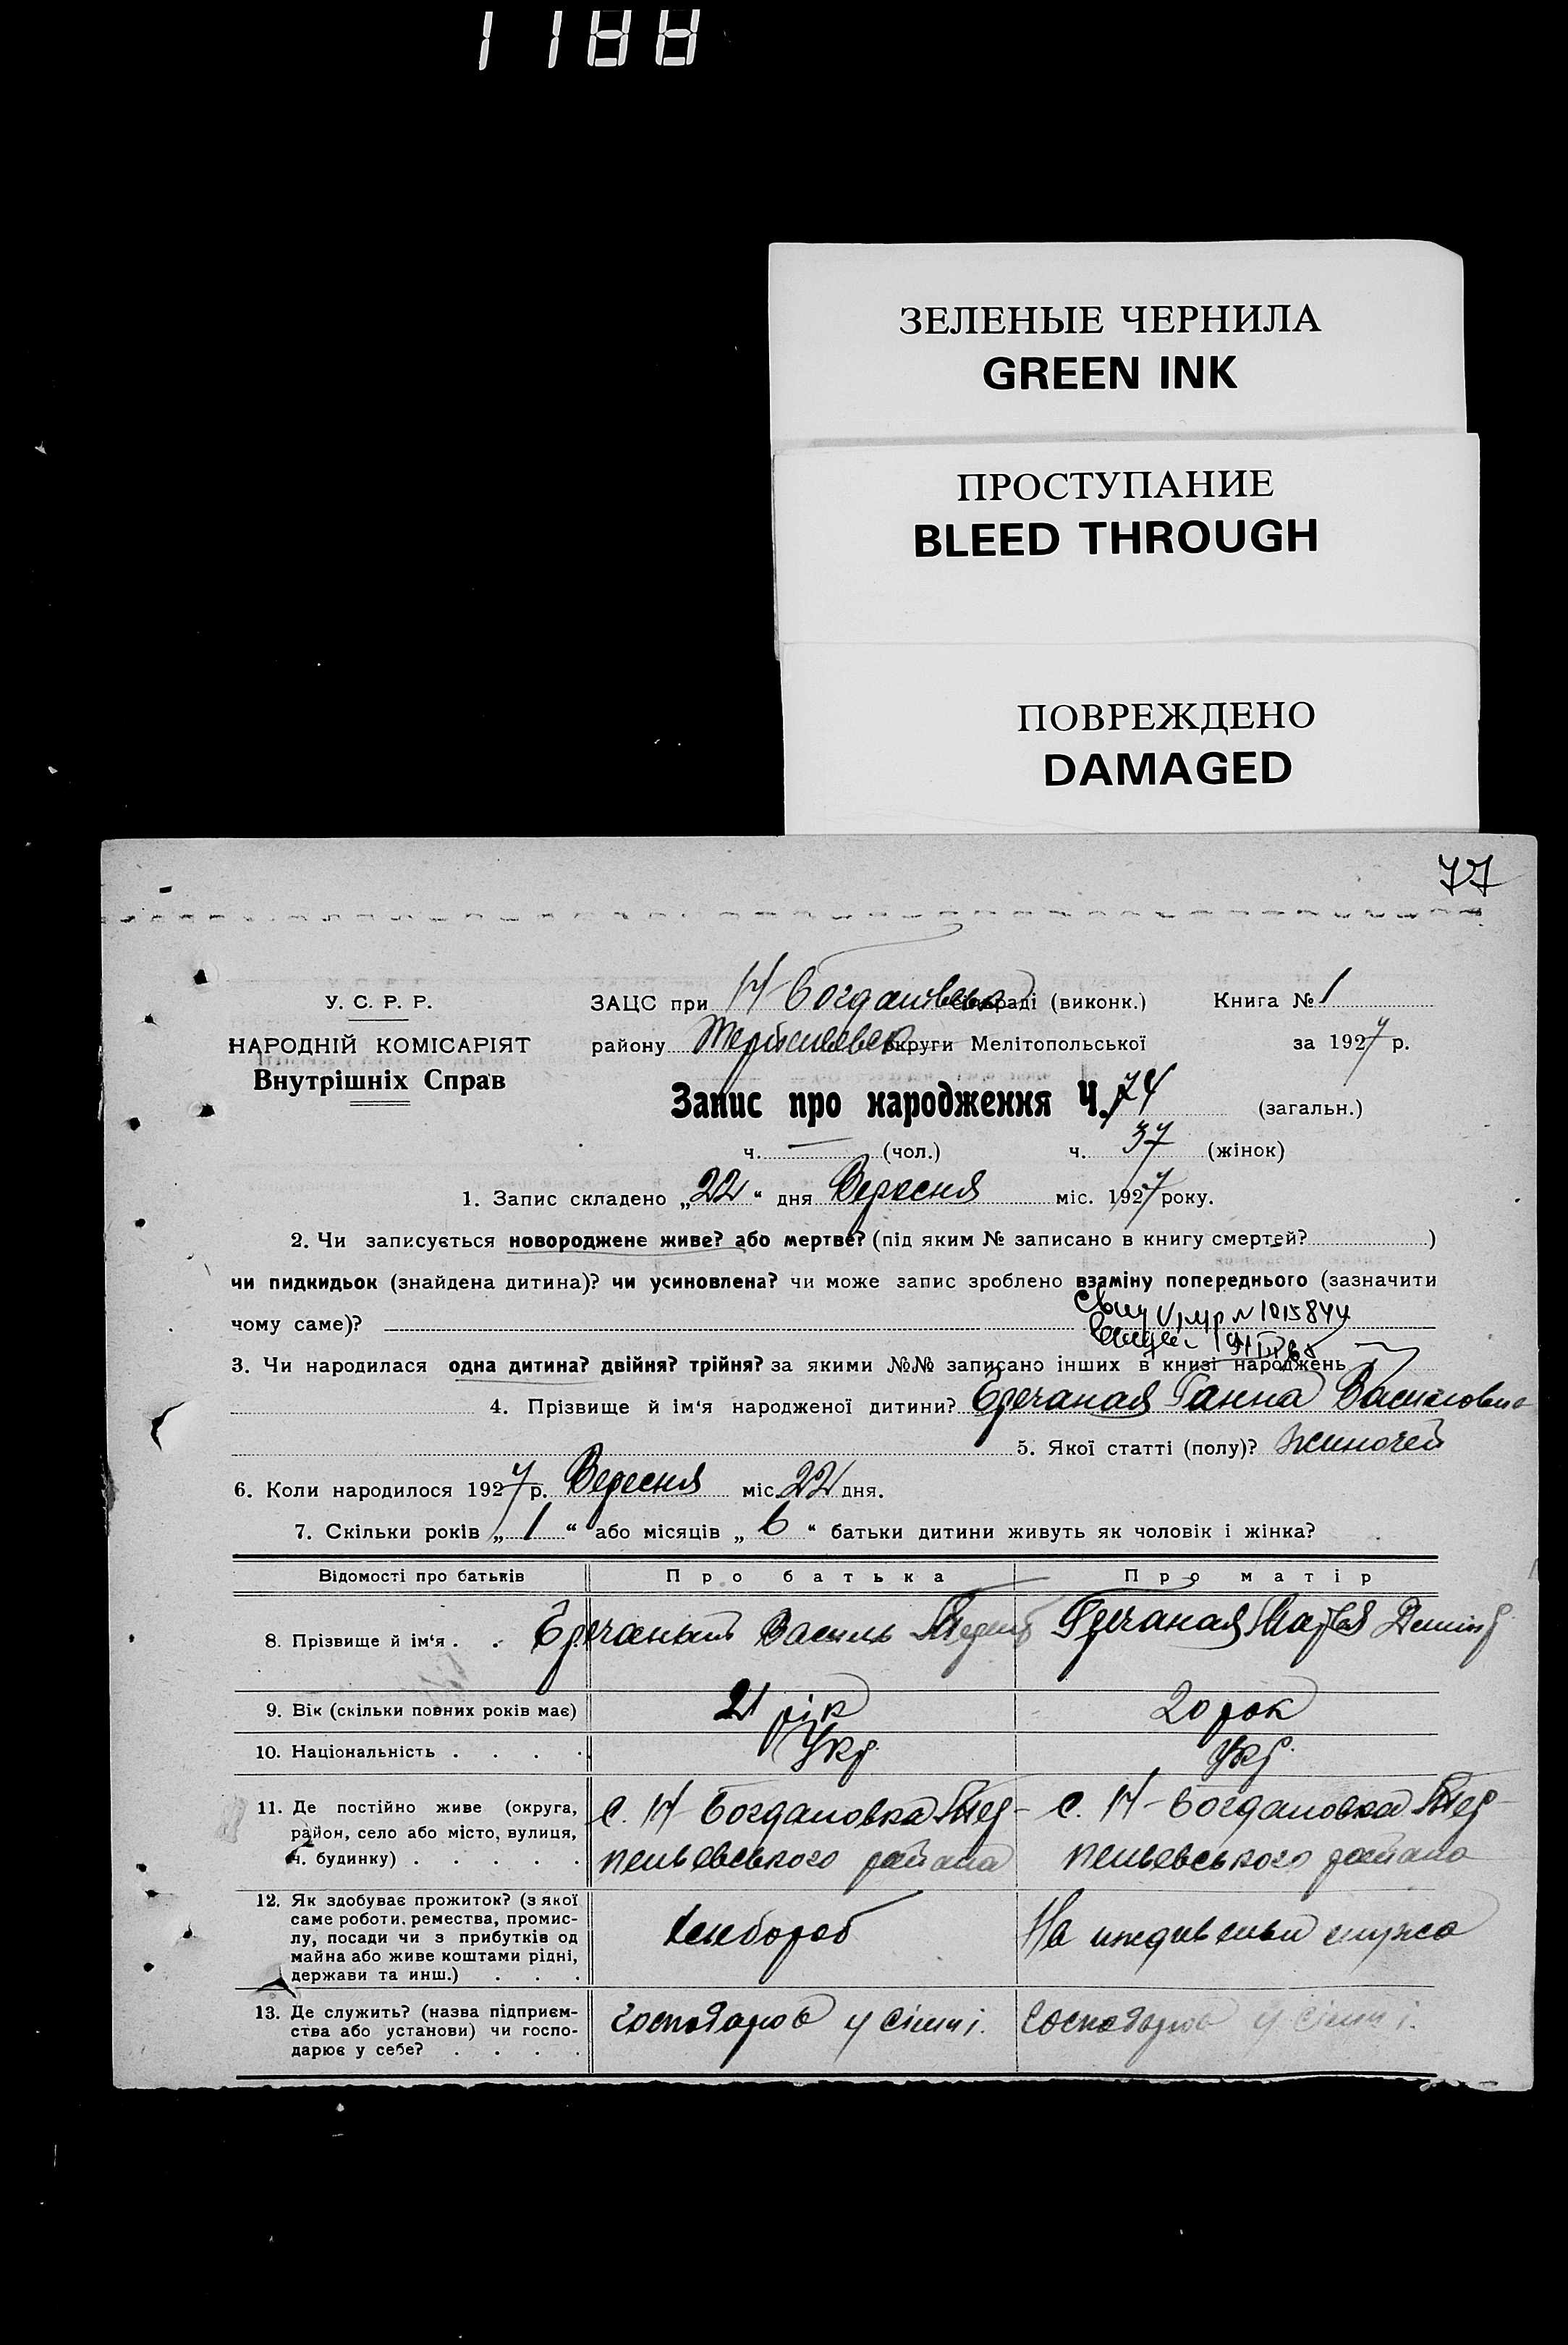 1188
ЗЕЛЕНЫЕ ЧЕРНИЛА
GREEN INK
ПРОСТУПАНИЕ
BLEED THROUGH
ПОВРЕЖДЕНО
DAMAGED
77
У. С. Р. Р.
НАРОДНІЙ КОМІСАРІЯТ
Внутрішніх Справ
ЗАЦС при Н Богданівська сільраді (виконк.) Книга № 1
району округи Мелітопольської за 1927 р.
Запис про народження Ч. 74 (загальн.)
ч. — (чол.) ч. 37 (жінок)
1. Запис складено „22“ дня Вересня міс. 1927 року.
2. Чи записується новороджене живе? або мертве? (під яким № записано в книгу смертей? )
чи пидкидьок (знайдена дитина)? чи усиновлена? чи може запис зроблено взаміну попереднього (зазначити
чому саме)?
N 1015844
3. Чи народилася одна дитина? двійня? трійня? за якими №№ записано інших в книзі народжень
4. Прізвище й ім‘я народженої дитини? Гречаная Ганна Василовна
5. Якої статті (полу)? жиночей
6. Коли народилося 1927 р. Вересня міс. 22 дня.
7. Скільки років „1“ або місяців „6“ батьки дитини живуть як чоловік і жінка?
Відомості про батьків Про батька Про матір
8. Прізвище й ім‘я . . Гречаный Василь Гречаная Марья
9. Вік (скільки повних років має) 21 рік 20 рок
10. Національність . . . . Укр. Укр.
11. Де постійно живе (округа, район, село або місто, вулиця, ч. будинку) . . . . .
с. Н-Богдановка Тер-
пеньевського района
с. Н-Богдановка Тер-
пеньевського района
12. Як здобуває прожиток? (з якої саме роботи, ремества, промислу, посади чи з прибутків од майна або живе коштами рідні, держави та инш.) . . .
Хлебороб
На иждивеньи мужа
13. Де служить? (назва підприємства або установи) чи господарює у себе? . . . .
господарюв у сімпі.
господарюв у сімпі.